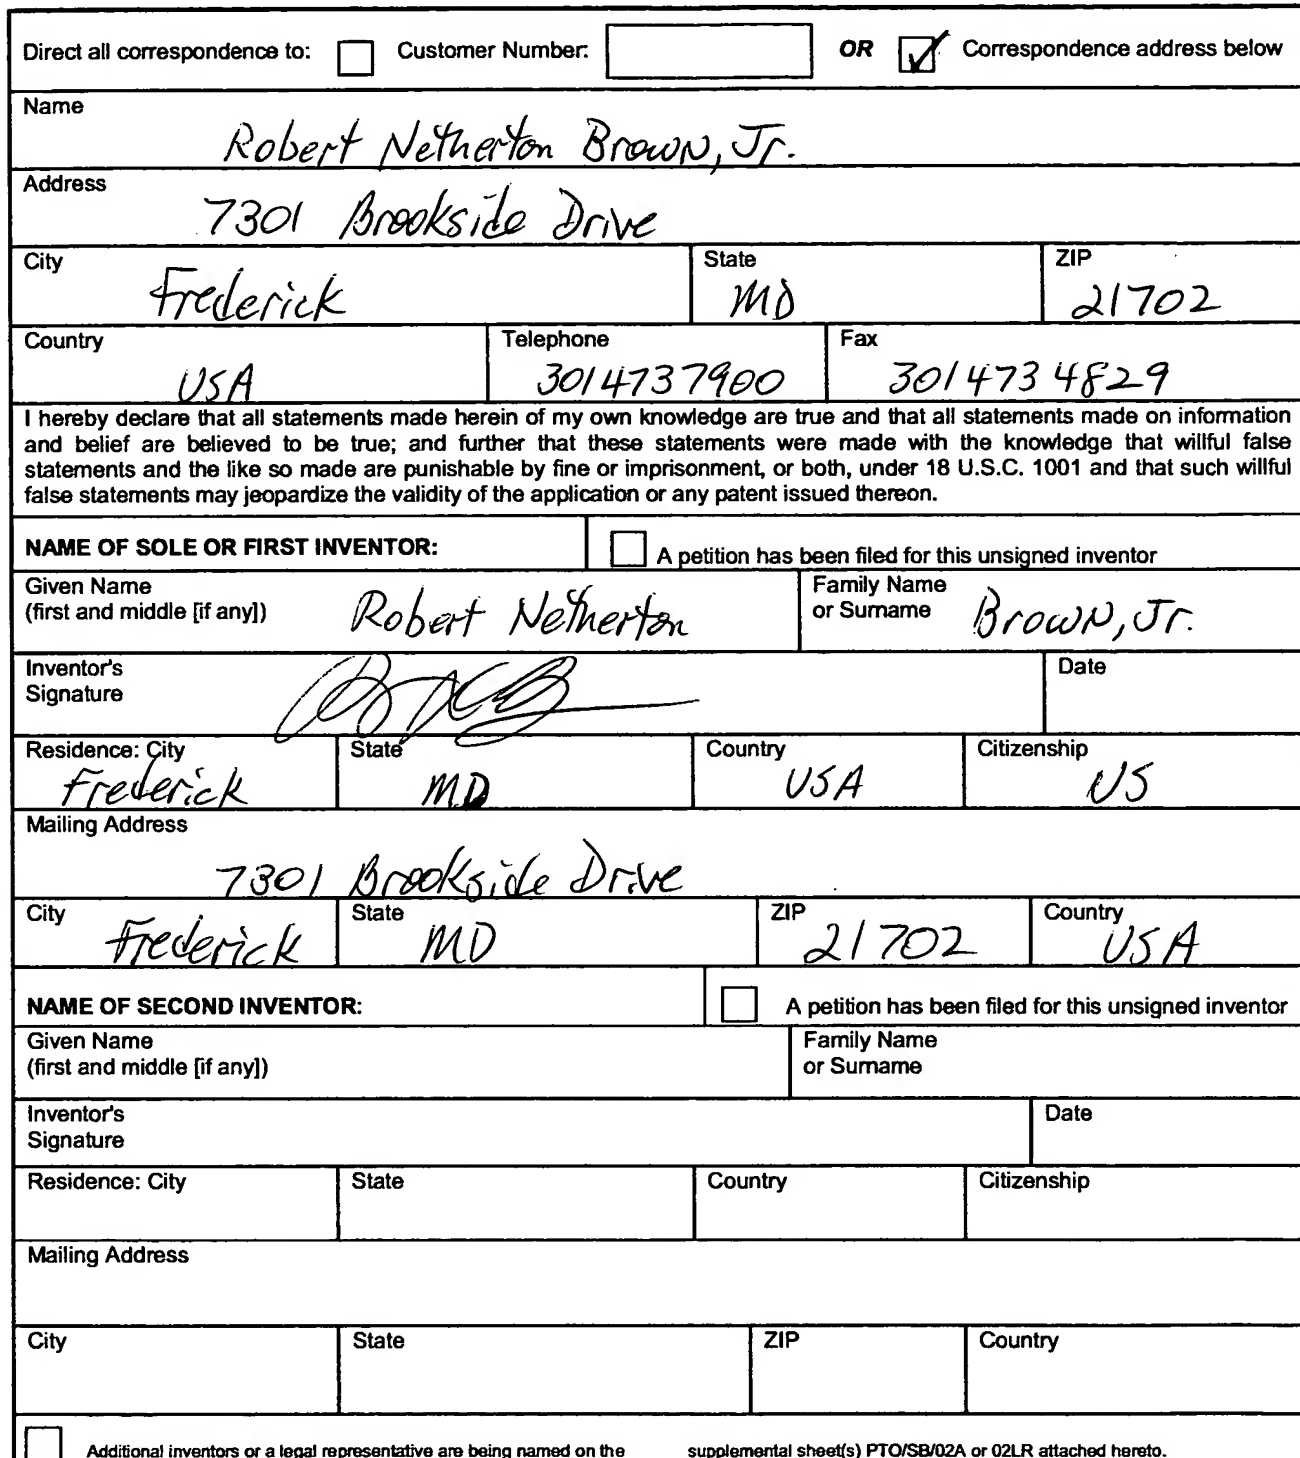 Direct all correspondence to: Customer Number: OR Correspondence address below
Name
Robert Netherton Brown, Jr.
Address
7301 Brookside Drive
City State ZIP
Frederick MD 21702
Country Telephone Fax
USA 3014737900 3014734829
I hereby declare that all statements made herein of my own knowledge are true and that all statements made on information
and belief are believed to be true; and further that these statements were made with the knowledge that willful false
statements and the like so made are punishable by fine or imprisonment, or both, under 18 U.S.C. 1001 and that such willful
false statements may jeopardize the validity of the application or any patent issued thereon.
NAME OF SOLE OR FIRST INVENTOR: A petition has been filed for this unsigned inventor
Given Name Family Name
(first and middle [if any]) Robert Netherton or Surname Brown, Jr.
Inventor's Date
Signature
Residence: City State Country Citizenship
Frederick MD USA US
Mailing Address
7301 Brookside Drive
City State ZIP Country
Frederick MD 21702 USA
NAME OF SECOND INVENTOR: A petition has been filed for this unsigned inventor
Given Name Family Name
(first and middle [if any]) or Surname
Inventor's Date
Signature
Residence: City State Country Citizenship
Mailing Address
City State ZIP Country
Additional inventors or a legal representative are being named on the supplemental sheet(s) PTO/SB/02A or 02LR attached hereto.